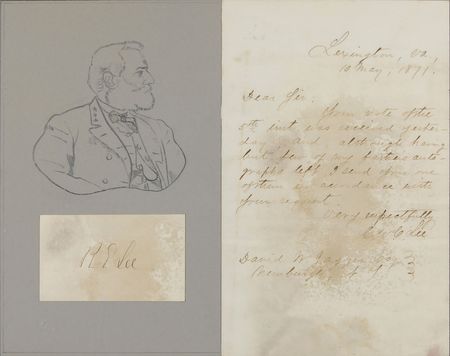 R E Lee
Lexington, Va,
10 May, 1871.
Dear Sir.
Your note of the
5th inst was received yester-
day. And although having
but few of my fathers auto-
graphs left I send you one
of them in accordance with
your request.
Very respectfully
G W C Lee
David W Jagger Esq
Newburgh, N Y